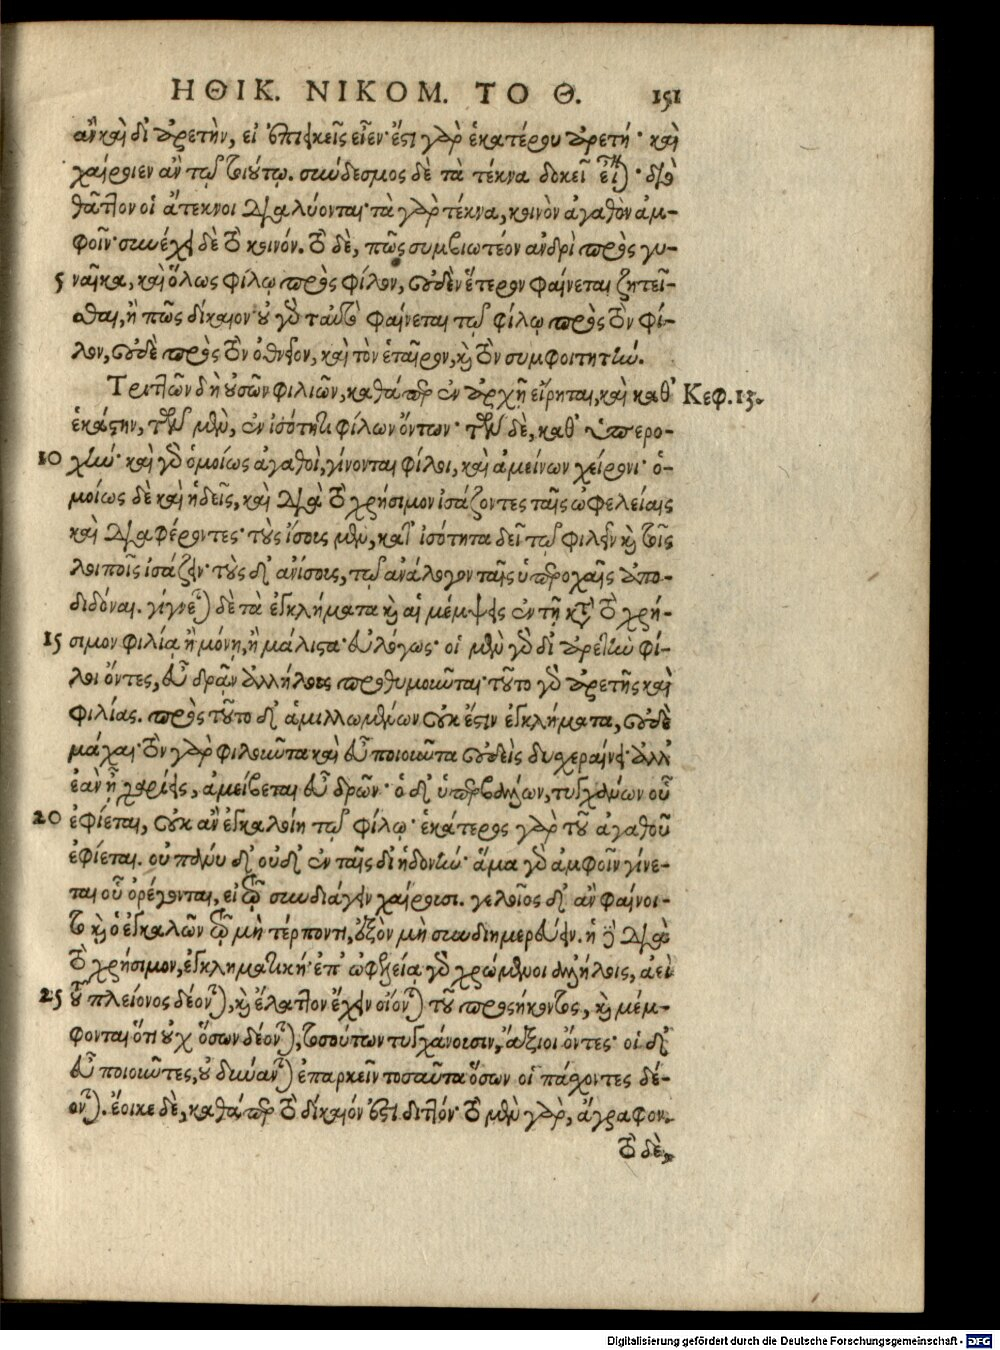 ΗΘΙΚ. ΝΙΚΟΜ. ΤΟ Θ. 151
ἂν καὶ δι' ἀρετὴν, εἰ ἐπιεικεῖς εἶεν· ἔστι γὰρ ἑκατέρου ἀρετή· καὶ
χαίροιεν ἂν τῷ τοιούτῳ. σύνδεσμος δὲ τὰ τέκνα δοκεῖ εἶναι· διὸ
θᾶττον οἱ ἄτεκνοι διαλύονται· τὰ γὰρ τέκνα, κοινὸν ἀγαθὸν ἀμ-
φοῖν· συνέχει δὲ τὸ κοινόν. τὸ δὲ, πῶς συμβιωτέον ἀνδρὶ πρὸς γυ-
5 ναῖκα, καὶ ὅλως φίλῳ πρὸς φίλον, οὐδὲν ἕτερον φαίνεται ζητεῖ-
σθαι, ἢ πῶς δίκαιον· οὐ γὰρ ταὐτὸ φαίνεται τῷ φίλῳ πρὸς τὸν φί-
λον, οὐδὲ πρὸς τὸν ὀθνεῖον, καὶ τὸν ἑταῖρον, καὶ τὸν συμφοιτητήν.
Τριττῶν δὴ οὐσῶν φιλιῶν, καθάπερ ἐν ἀρχῇ εἴρηται, καὶ καθ' Κεφ. 13.
ἑκάστην, τῶν μὲν, ἐν ἰσότητι φίλων ὄντων· τῶν δὲ, καθ' ὑπερο-
10 χήν· καὶ γὰρ ὁμοίως ἀγαθοὶ, γίνονται φίλοι, καὶ ἀμείνων χείρονι· ὁ-
μοίως δὲ καὶ ἡδεῖς, καὶ διὰ τὸ χρήσιμον ἰσάζοντες ταῖς ὠφελείαις
καὶ διαφέροντες· τοὺς ἴσους μὲν, κατ' ἰσότητα δεῖ τῷ φιλεῖν καὶ τοῖς
λοιποῖς ἰσάζειν· τοὺς δ' ἀνίσους, τῷ ἀνάλογον ταῖς ὑπεροχαῖς ἀπο-
διδόναι. γίγνεται δὲ τὰ ἐγκλήματα καὶ αἱ μέμψεις ἐν τῇ κατὰ τὸ χρή-
15 σιμον φιλίᾳ ἢ μόνῃ, ἢ μάλιστα· εὐλόγως· οἱ μὲν γὰρ δι' ἀρετὴν φί-
λοι ὄντες, εὖ δρᾶν ἀλλήλους προθυμοῦνται· τοῦτο γὰρ ἀρετῆς καὶ
φιλίας. πρὸς τοῦτο δ' ἁμιλλωμένων οὐκ ἔστιν ἐγκλήματα, οὐδὲ
μάχαι· τὸν γὰρ φιλοῦντα καὶ εὖ ποιοῦντα οὐδεὶς δυσχεραίνει· ἀλλ'
ἐὰν ᾖ χαρίεις, ἀμείβεται εὖ δρῶν· ὁ δ' ὑπερβάλλων, τυγχάνων οὗ
20 ἐφίεται, οὐκ ἂν ἐγκαλοίη τῷ φίλῳ· ἑκάτερος γὰρ τοῦ ἀγαθοῦ
ἐφίεται. οὐ πάνυ δ' οὐδ' ἐν ταῖς δι' ἡδονήν· ἅμα γὰρ ἀμφοῖν γίνε-
ται οὗ ὀρέγονται, εἰ τῷ συνδιάγειν χαίρουσι. γελοῖος δ' ἂν φαίνοι-
το καὶ ὁ ἐγκαλῶν τῷ μὴ τέρποντι, ἐξὸν μὴ συνδιημερεύειν. ἡ δὲ διὰ
τὸ χρήσιμον, ἐγκληματική· ἐπ' ὠφελείᾳ γὰρ χρώμενοι ἀλλήλοις, ἀεὶ
25 τοῦ πλείονος δέονται, καὶ ἔλαττον ἔχειν οἴονται τοῦ προσήκοντος, καὶ μέμ-
φονται ὅτι οὐχ ὅσων δέονται, τοσούτων τυγχάνουσιν, ἄξιοι ὄντες· οἱ δ'
εὖ ποιοῦντες, οὐ δύνανται ἐπαρκεῖν τοσαῦτα ὅσων οἱ πάσχοντες δέ-
ονται. ἔοικε δὲ, καθάπερ τὸ δίκαιόν ἐστι διττόν· τὸ μὲν γὰρ, ἄγραφον.
τὸ δὲ,
Digitalisierung gefördert durch die Deutsche Forschungsgemeinschaft - DFG